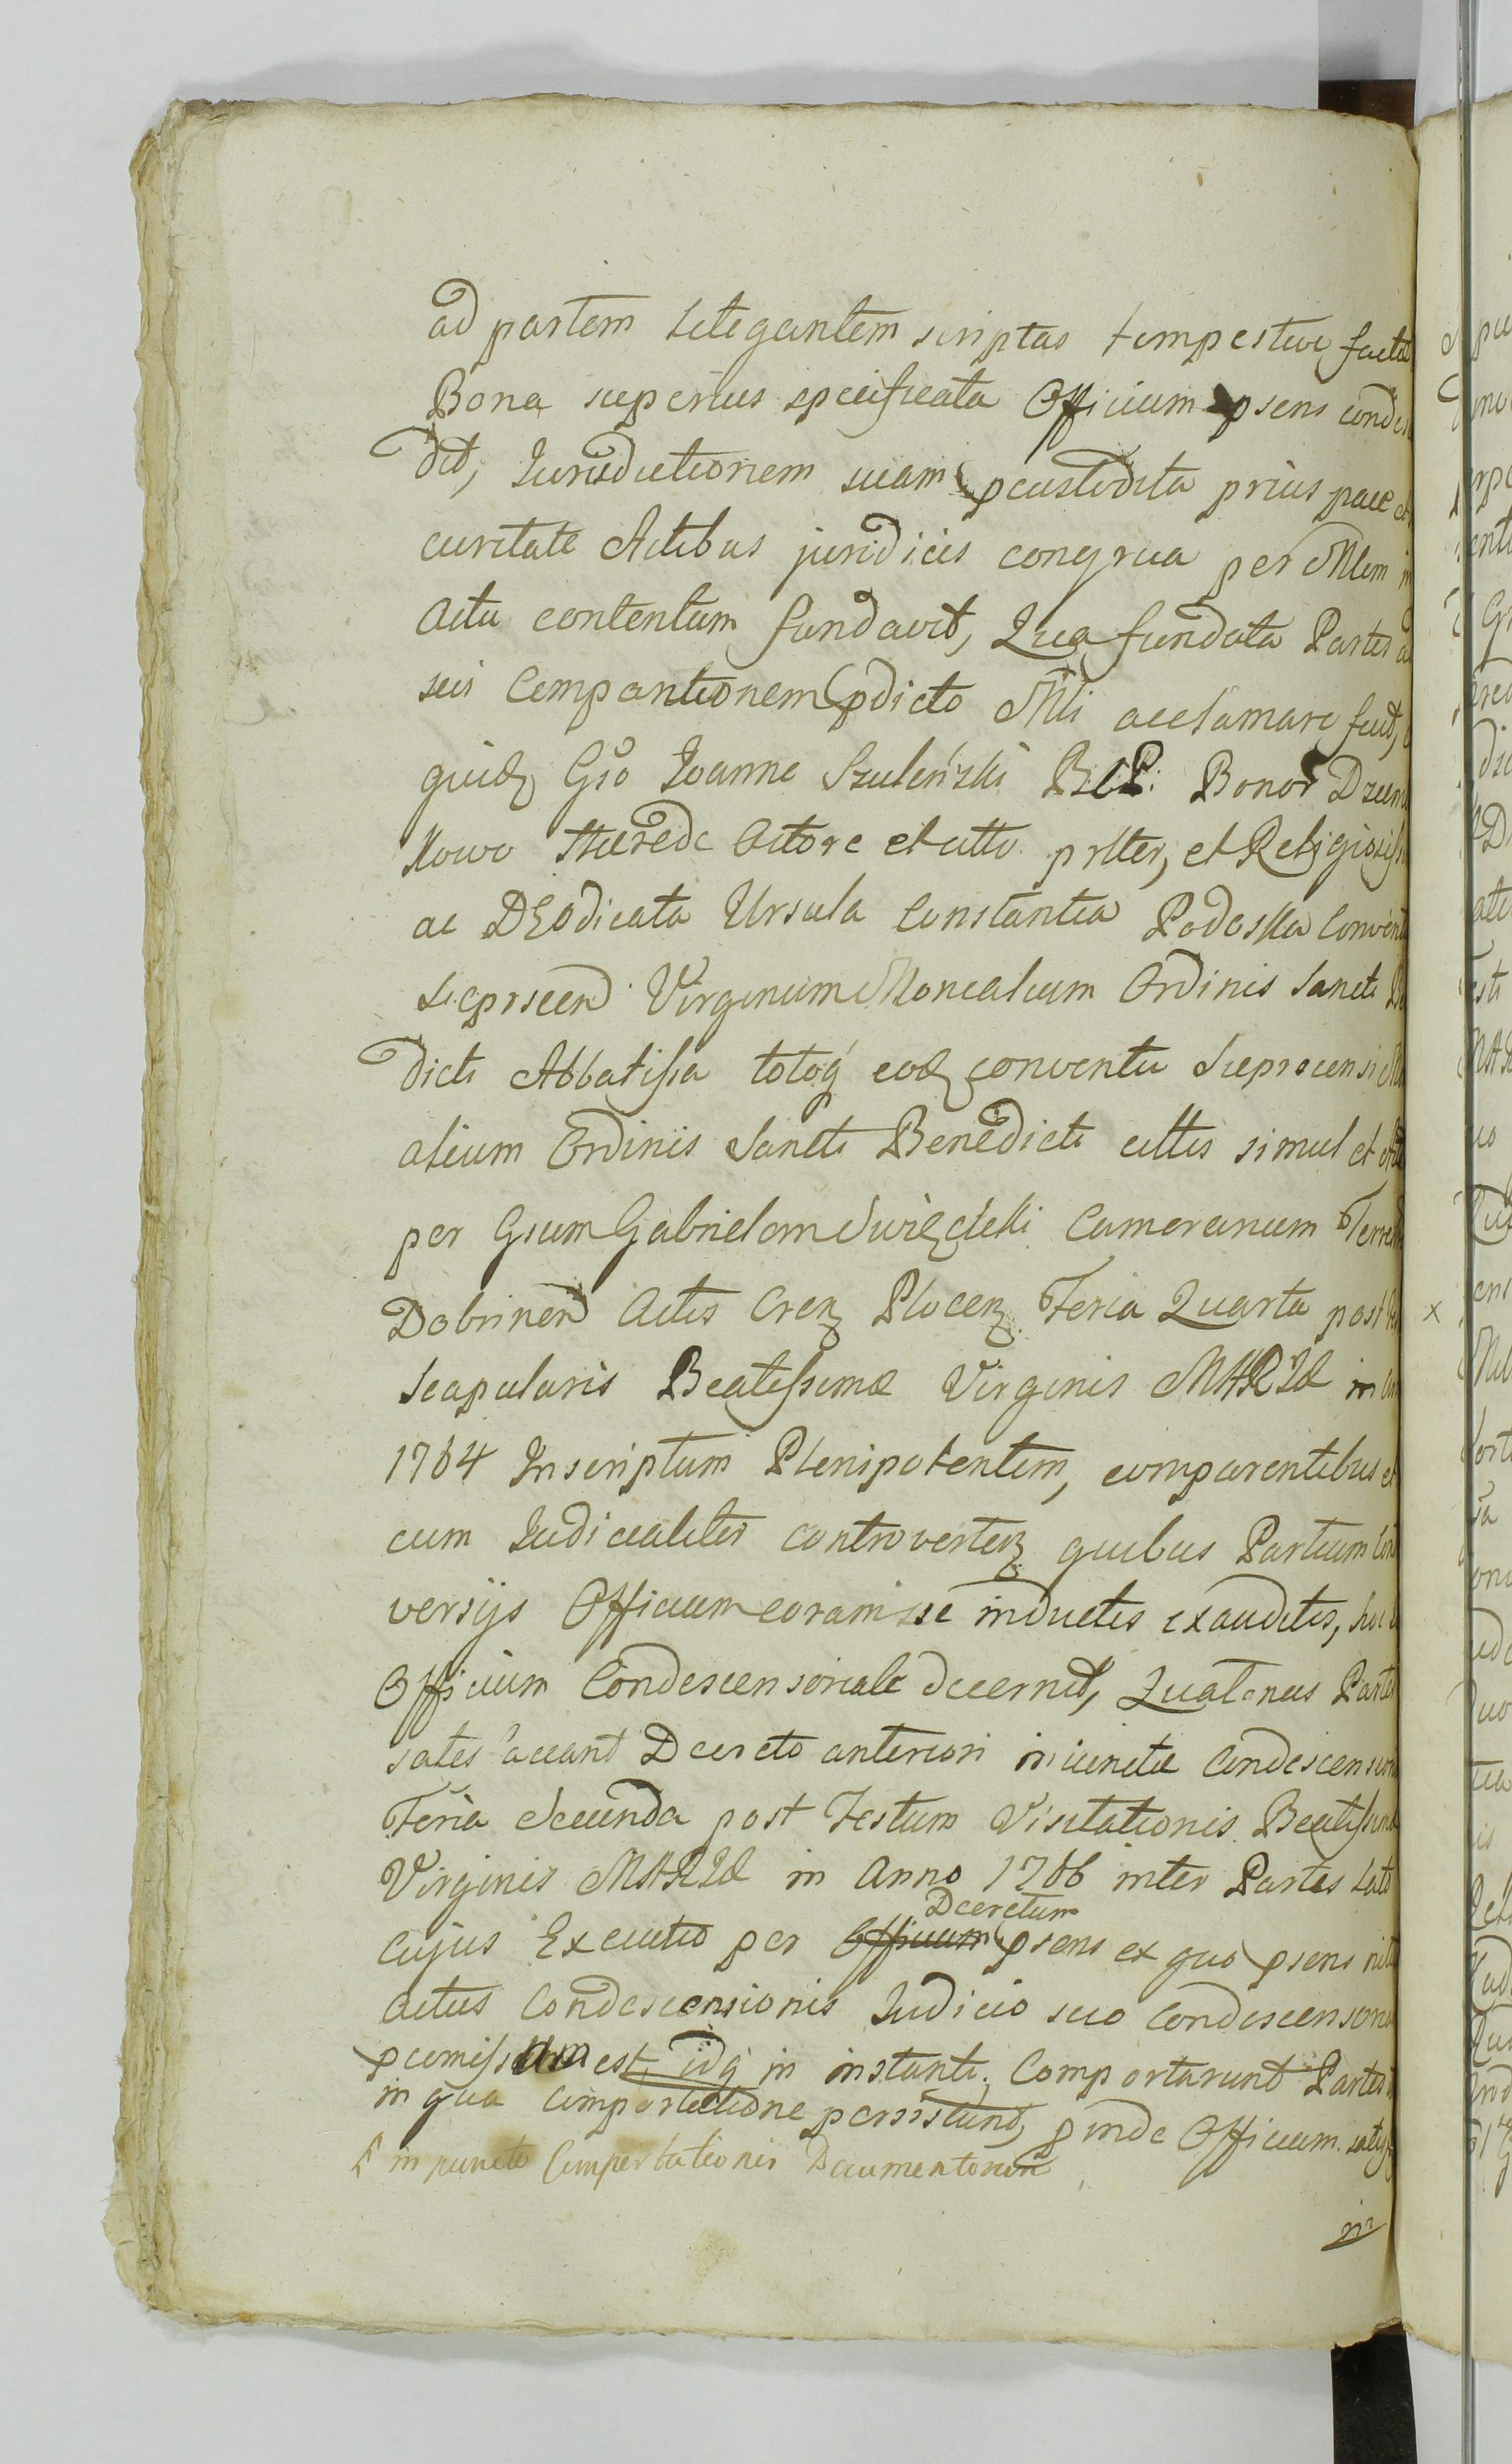 ad partem litigantem scriptas tempestive facta
Bona superius specificata Officium psens conde
dit, Jurisdictionem suam pcustodita prius pace et
curitate Actibus juridicis congrua per Mlem in
Actu contentum fundavit, Qua fundata Partes ad
sui Compantionem pdicto Mli acclamare fecit,
quidẽ Gso Joanne Szuleński Bonor Dzum
kowo Hærede Actore et citto prltter, et Religiosiss
ac DEOdicata Ursula Constantia Podoska Convent
Sieprscen Virginum Monialium Ordinis Sancti Be
dicti Abbatissa totoq eod conventu Sieprscensi Mo
alium Ordinis Sancti Benedicti cittis simul et
per Gsum Gabrielem Swięcicki Cameranum Terrest
Dobrinen Actis Cren Plocen Feria Quarta post
Scapularis Beatissimæ Virginis MARIÆ in an
1764 Inscriptum Plenipotentem, comparentibus et
cum Judicialiter controverten quibus Partium Con
versijs Officium coram se inductis exauditis, hoc
Officium Condescensoriale decernit, Quatenus Partes
satis faceant Decreto anteriori in junctu Condescensor
Feria Secunda post Festum Visitationis Beatissimæ
Virginis MARIÆ in Anno 1766 inter Partes lato
Decretum
cujus Executio per Officium psens ex quo psens
actus Condescensionis Judicio suo Condescensor
pcomissum est, idq in instanti. Comportarunt Partes
in qua Comportatione persistunt, pinde Officium
in puncto Comportationis Documentorum
in